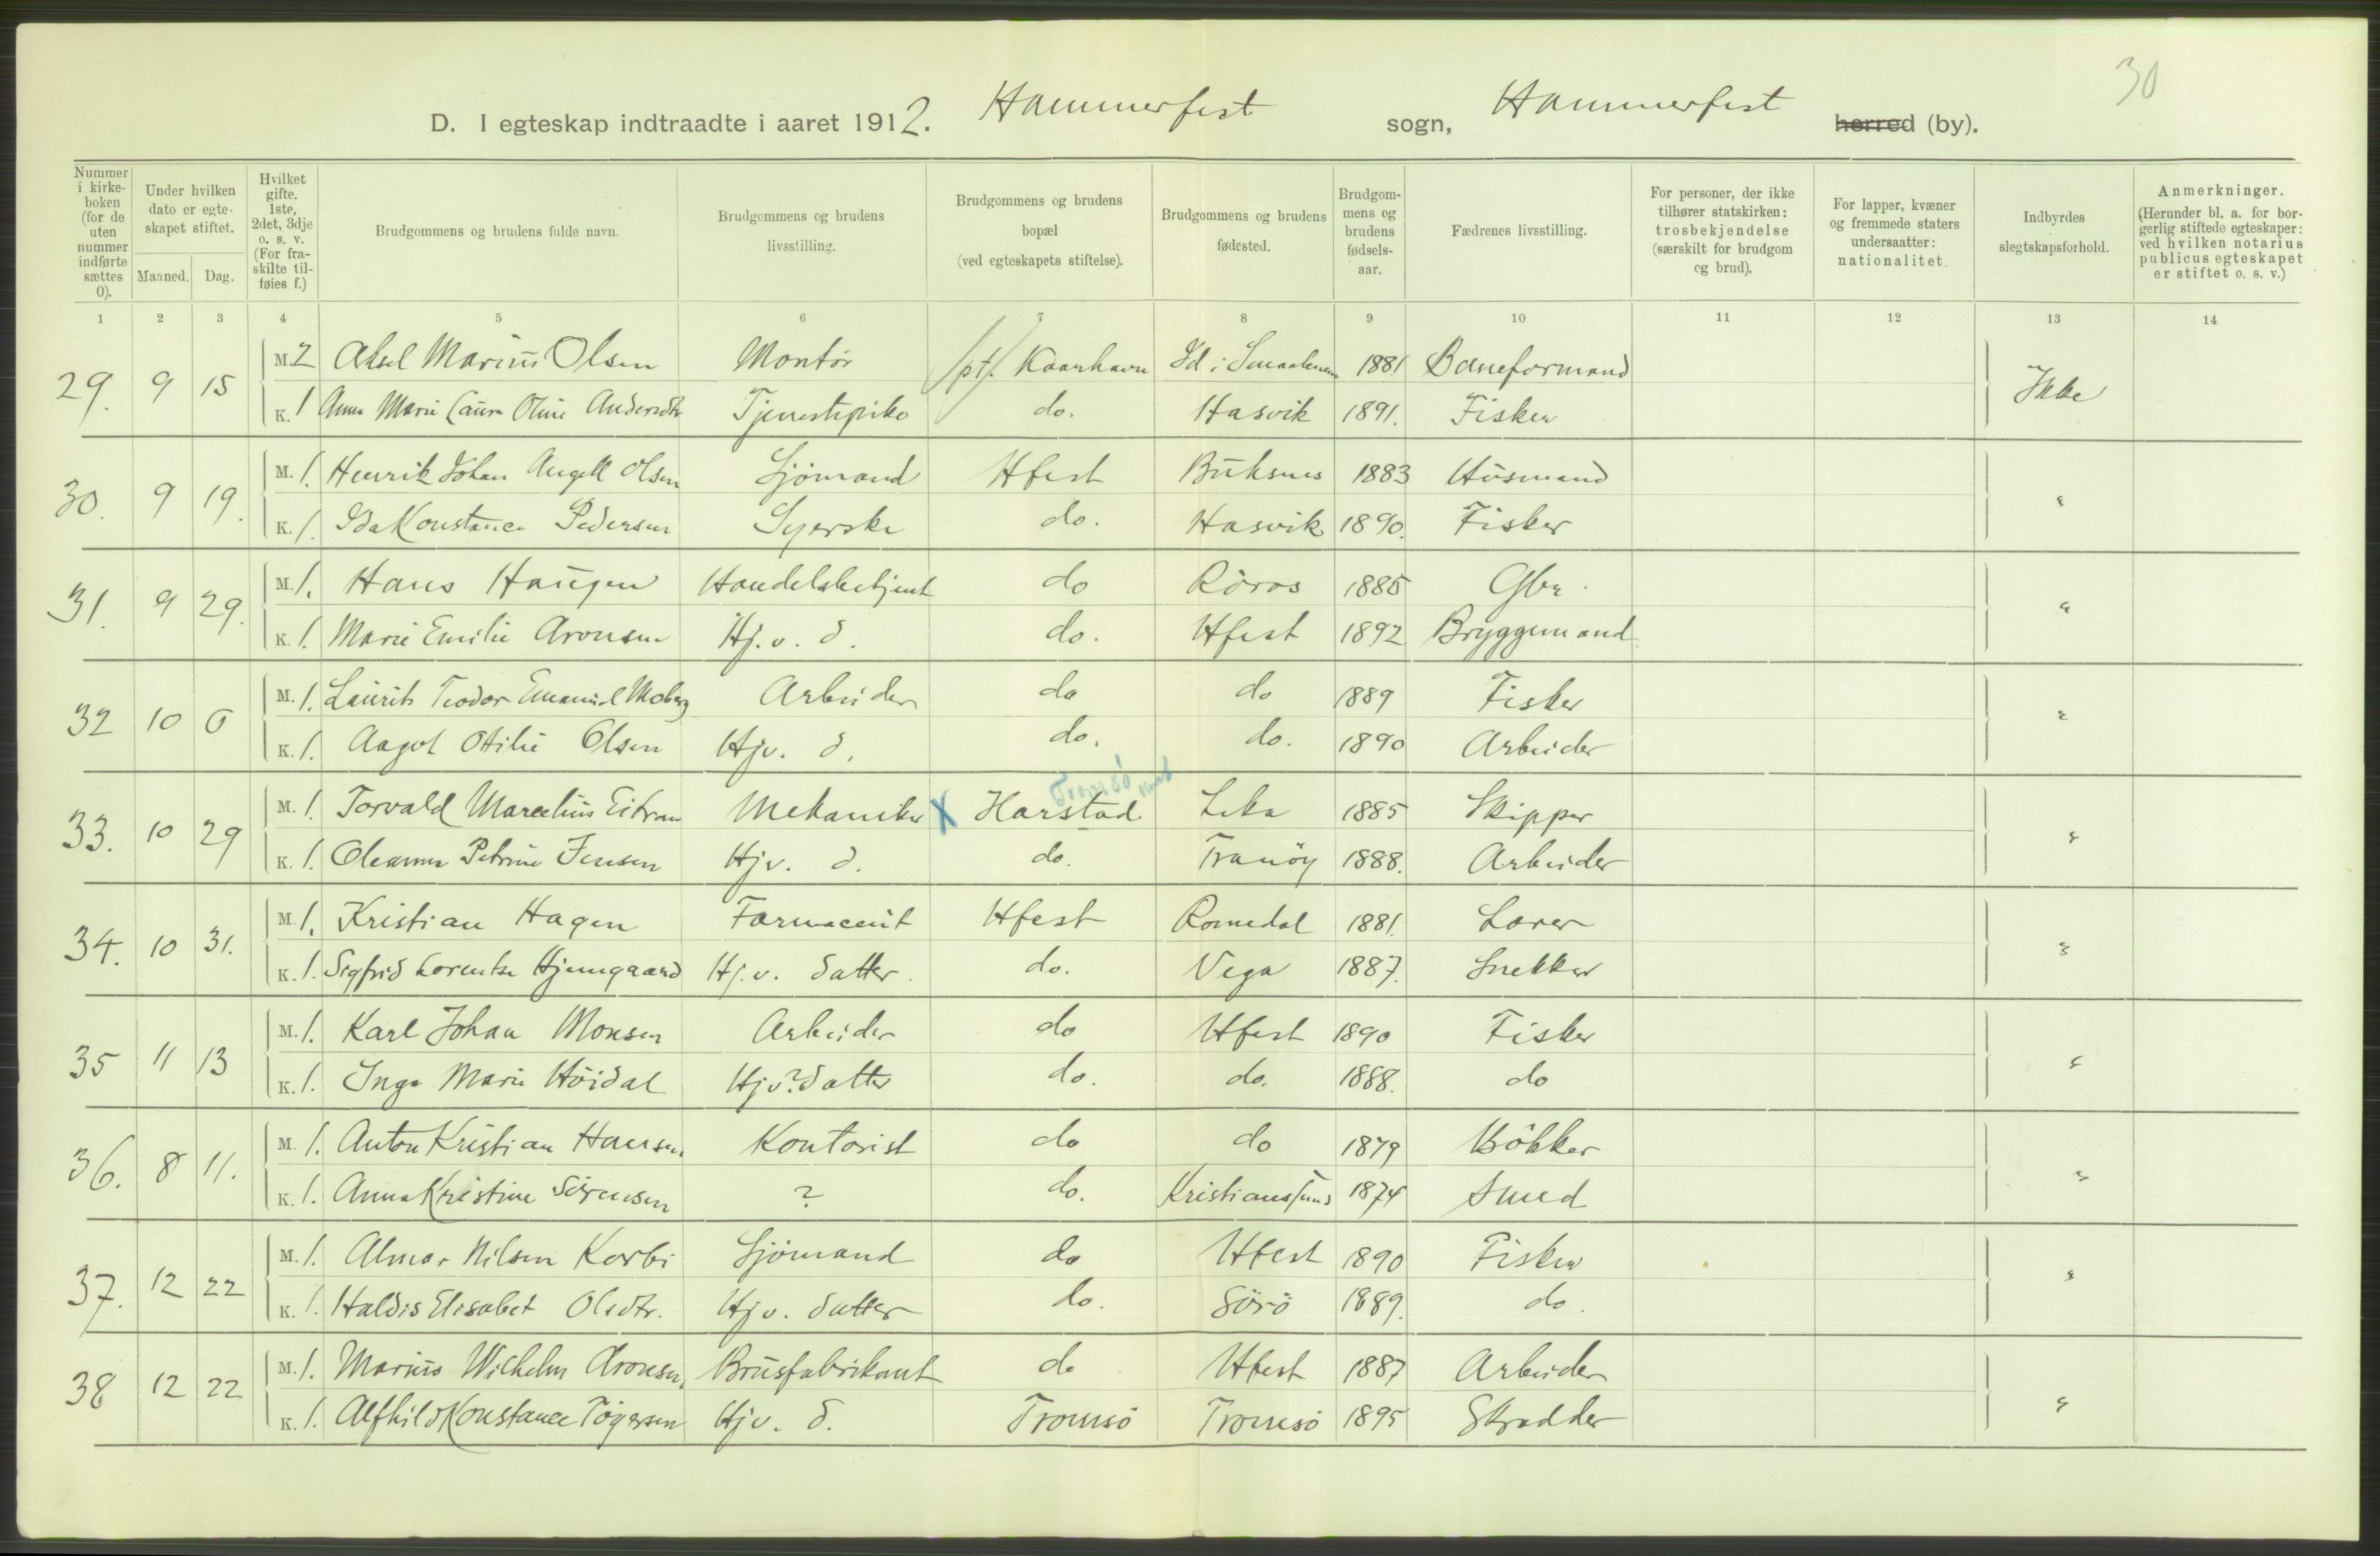 30
D. I egteskap indtraadte i aaret 1912. Hammerfest sogn, Hammerfest herred (by).
Nummer i kirkeboken (for de uten nummer indførte sættes 0).
Under hvilken dato er egteskapet stiftet.
Maaned. Dag.
Hvilket gifte. 1ste, 2det, 3dje o. s. v. (For fraskilte tilføies f.)
Brudgommens og brudens fulde navn.
Brudgommens og brudens livsstilling.
Brudgommens og brudens bopæl (ved egteskapets stiftelse).
Brudgommens og brudens fødested.
Brudgommens og brudens fødselsaar.
Fædrenes livsstilling.
For personer, der ikke tilhører statskirken: trosbekjendelse (særskilt for brudgom og brud).
For lapper, kvæner og fremmede staters undersaatter: nationalitet.
Indbyrdes slegtskapsforhold.
Anmerkninger. (Herunder bl. a. for borgerlig stiftede egteskaper: ved hvilken notarius publicus egteskapet er stiftet o. s. v.)
1 2 3 4 5 6 7 8 9 10 11 12 13 14
29. 9 15 M. 2 Aksel Marius Olsen Montör /pt/. Kaarhavn Id i Smaalenene 1881 Baneformand Ikke
K. 1 Anna Marie Laura Oline Andersdtr Tjenestepike do. Hasvik 1891. Fisker
30. 9 19. M. 1. Henrik Johan Angell Olsen Sjömand Hfest Buksnes 1883 Husmand "
K. 1. Ida Konstance Pedersen Syerske do. Hasvik 1890. Fisker
31. 9 29. M. 1. Hans Haugen Handelsbetjent do Röros 1885 Gbr. "
K. 1. Marie Emilie Aronsen Hj. v. d. do. Hfest 1892 Bryggemand
32 10 6 M. 1. Laurits Teodor Emanuel Moberg Arbeider do do 1889 Fisker "
K. 1. Aagot Otilie Olsen Hjv. d. do. do. 1890 Arbeider
Tromsö
33. 10 29 M. 1. Torvald Marcelius Eitran Mekaniker X Harstad Leka 1885 Skipper "
K. 1. Oleanna Petrine Jensen Hjv. d. do. Tranöy 1888. Arbeider
34. 10 31. M. 1. Kristian Hagen Farmaceut Hfest Romedal 1881. Lærer "
K. 1. Sigfrid Lorentse Hjemgaard Hj. v. datter. do. Vega 1887. Snekker
35 11 13 M. 1. Karl Johan Monsen Arbeider do Hfest 1890 Fisker "
K. 1. Inga Marie Höidal Hjv? datter do. do. 1888. do
36. 8 11. M. 1. Anton Kristian Hansen Kontorist do do 1879 Bökker "
K. 1. Anna Kristine Sörensen ? do. Kristianssund 1874 Smed
37. 12 22 M. 1. Almar Nilsen Korbi Sjömand do Hfest 1890 Fisker "
K. 1. Haldis Elisabet Olsdtr. Hjv. datter do. Sörö 1889. do.
38 12 22 M. 1. Marius Wilhelm Aronsen Brusfabrikant do Hfest 1887 Arbeider "
K. 1. Alfhild Konstance Tögersen Hjv. d. Tromsö Tromsö 1895 Skrædder